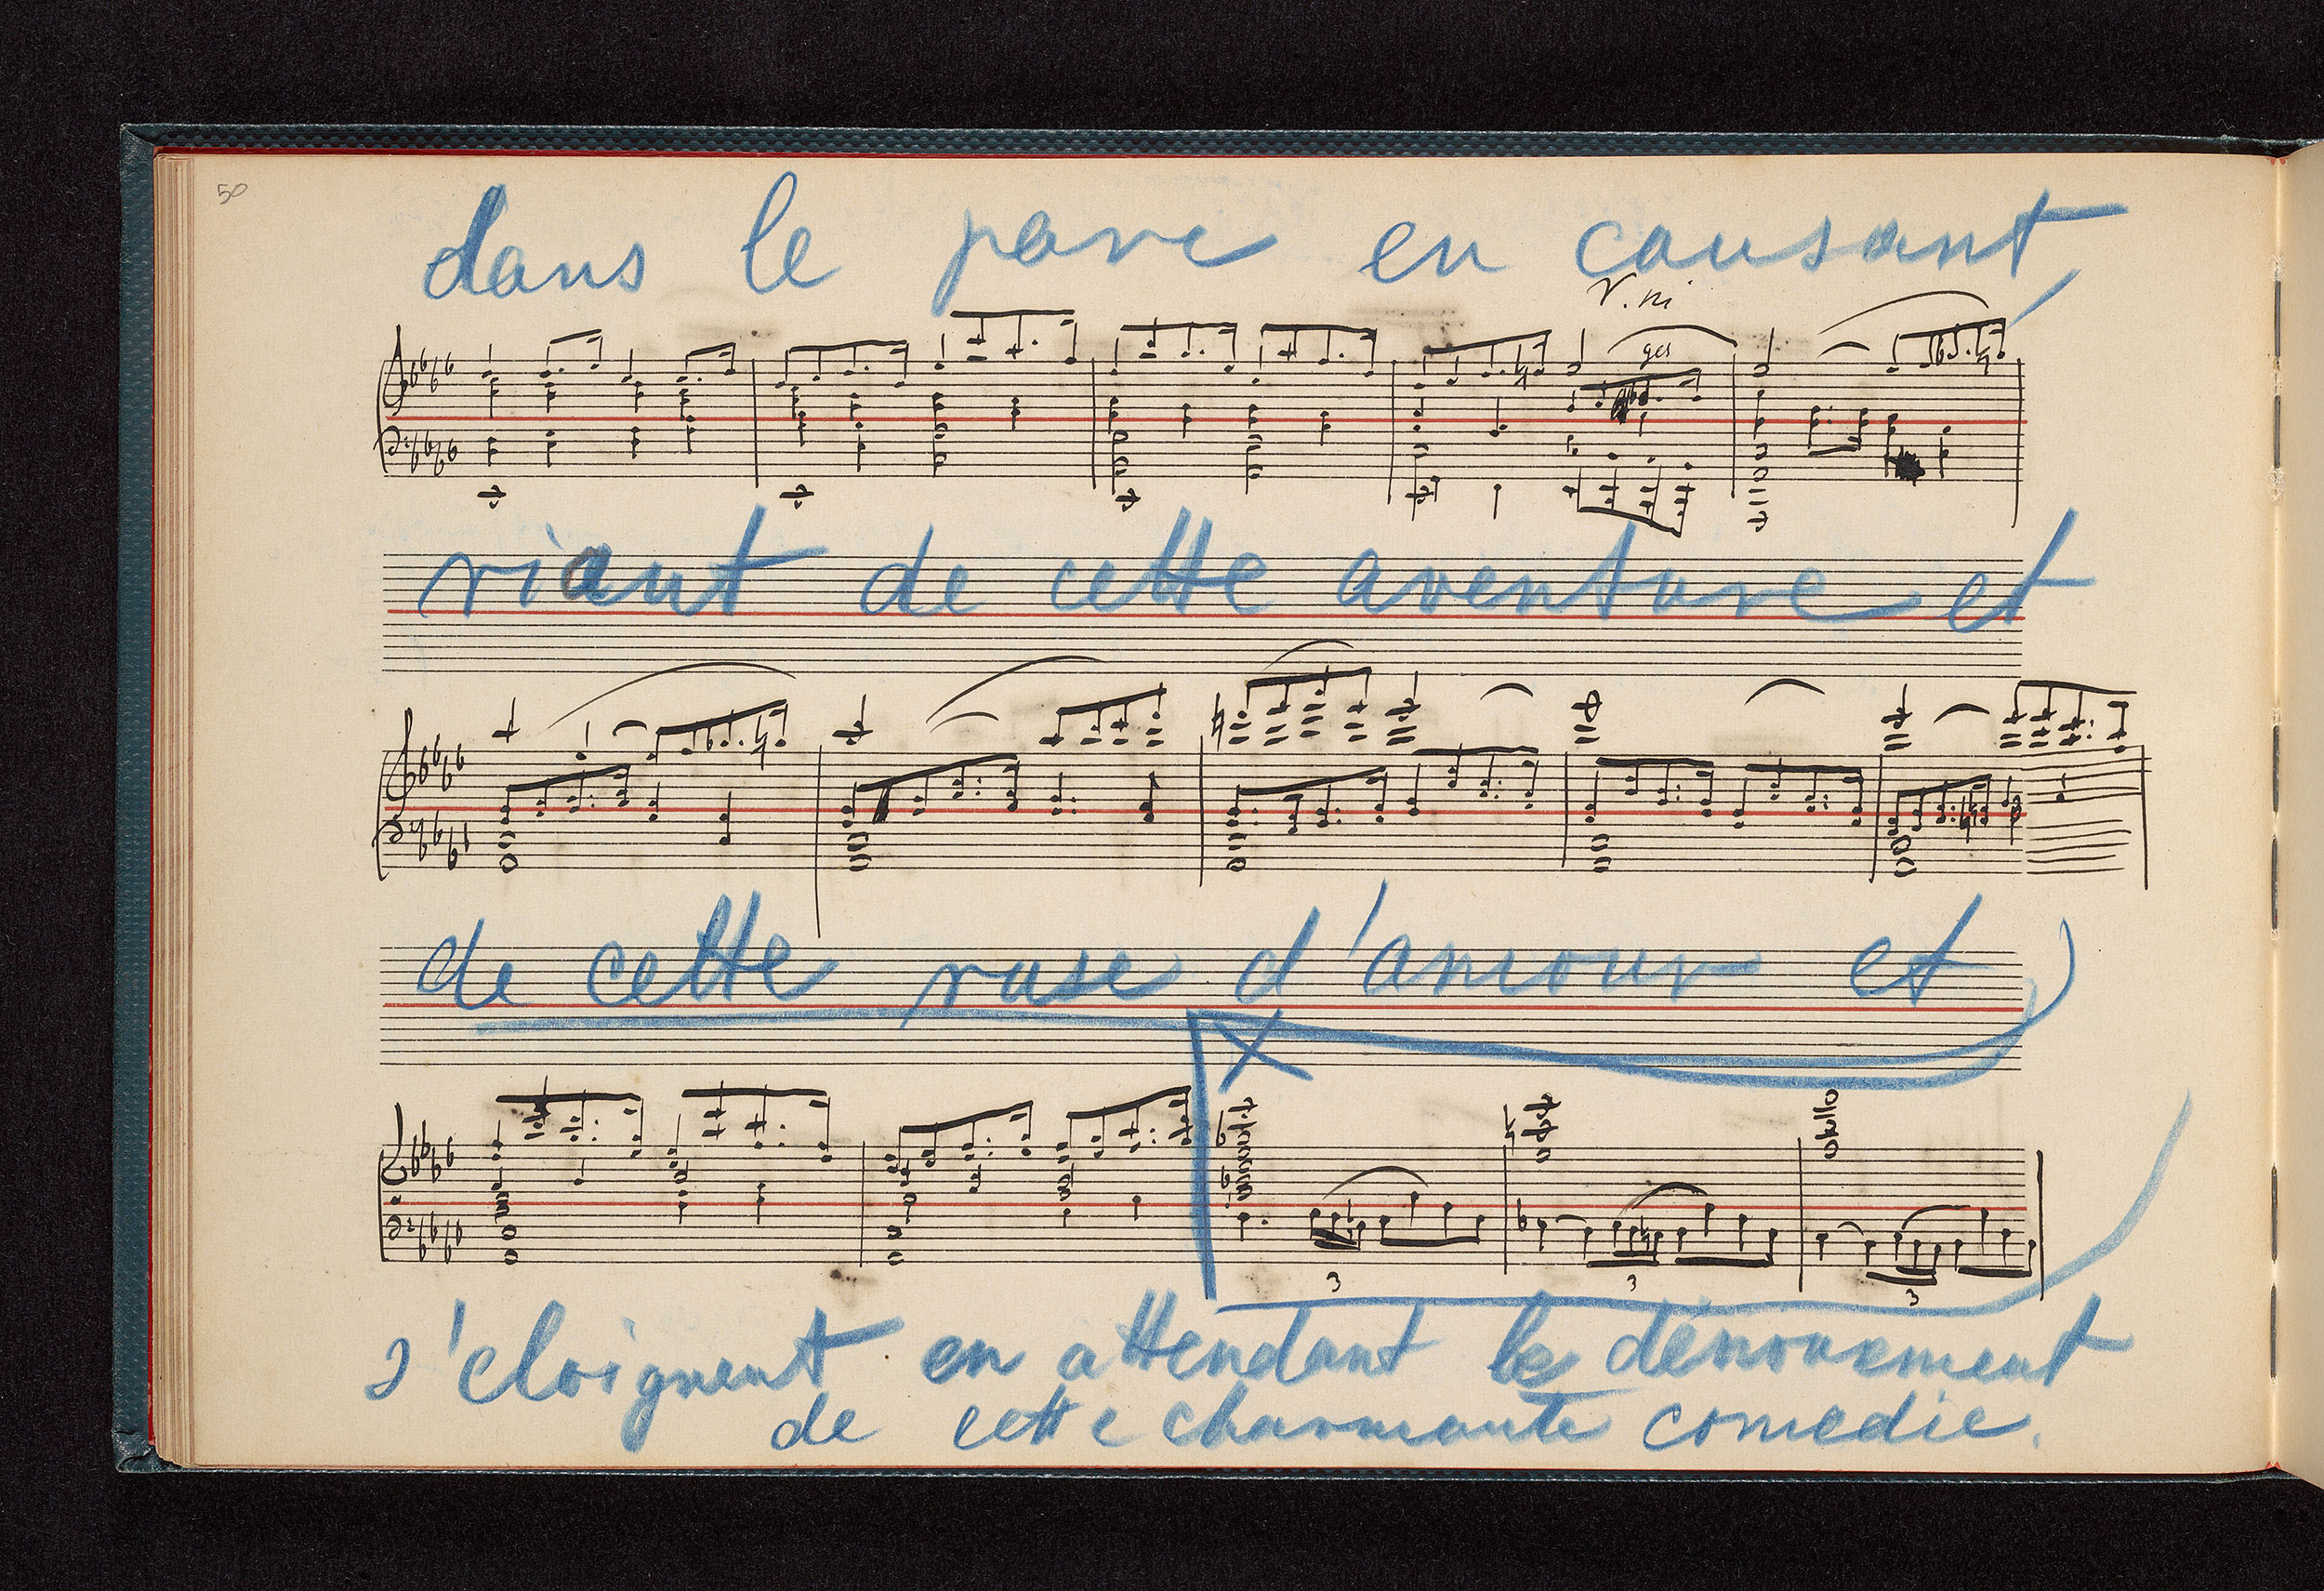 50
dans le parc en causant,
V.ni
ges
riant de cette aventure et
de cette ruse d'amour et
3 3 3
s'eloignent en attendant le dénouement
de cette charmante comedie.